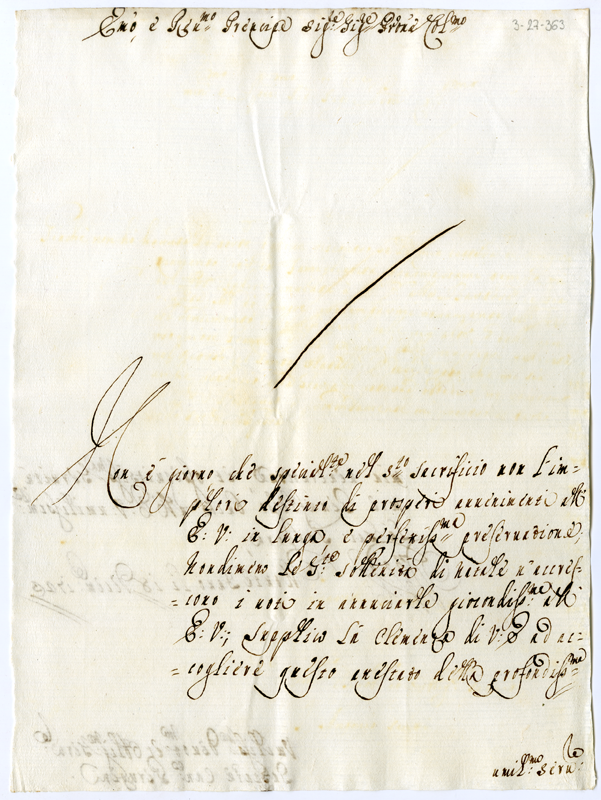 Emõ, e Reu:mo Prencipe Sig:re Sig:re Prõne Col:mo
3-27-363
Non è giorno che specialm:te nel S:to Sacrificio non l'im=
plori destino di prosperi avvenimenti all'
E: V: in lunga, e perfettiss:ma preservazione;
Nondimeno le S:te solennità di Natale n'accres=
=cono i voti in annunciarle giocondiss:me all'
E: V:; supplico la clemenza di V: E ad ac=
=cogliere questo attestato della profondiss:ma
umil:ma serv: